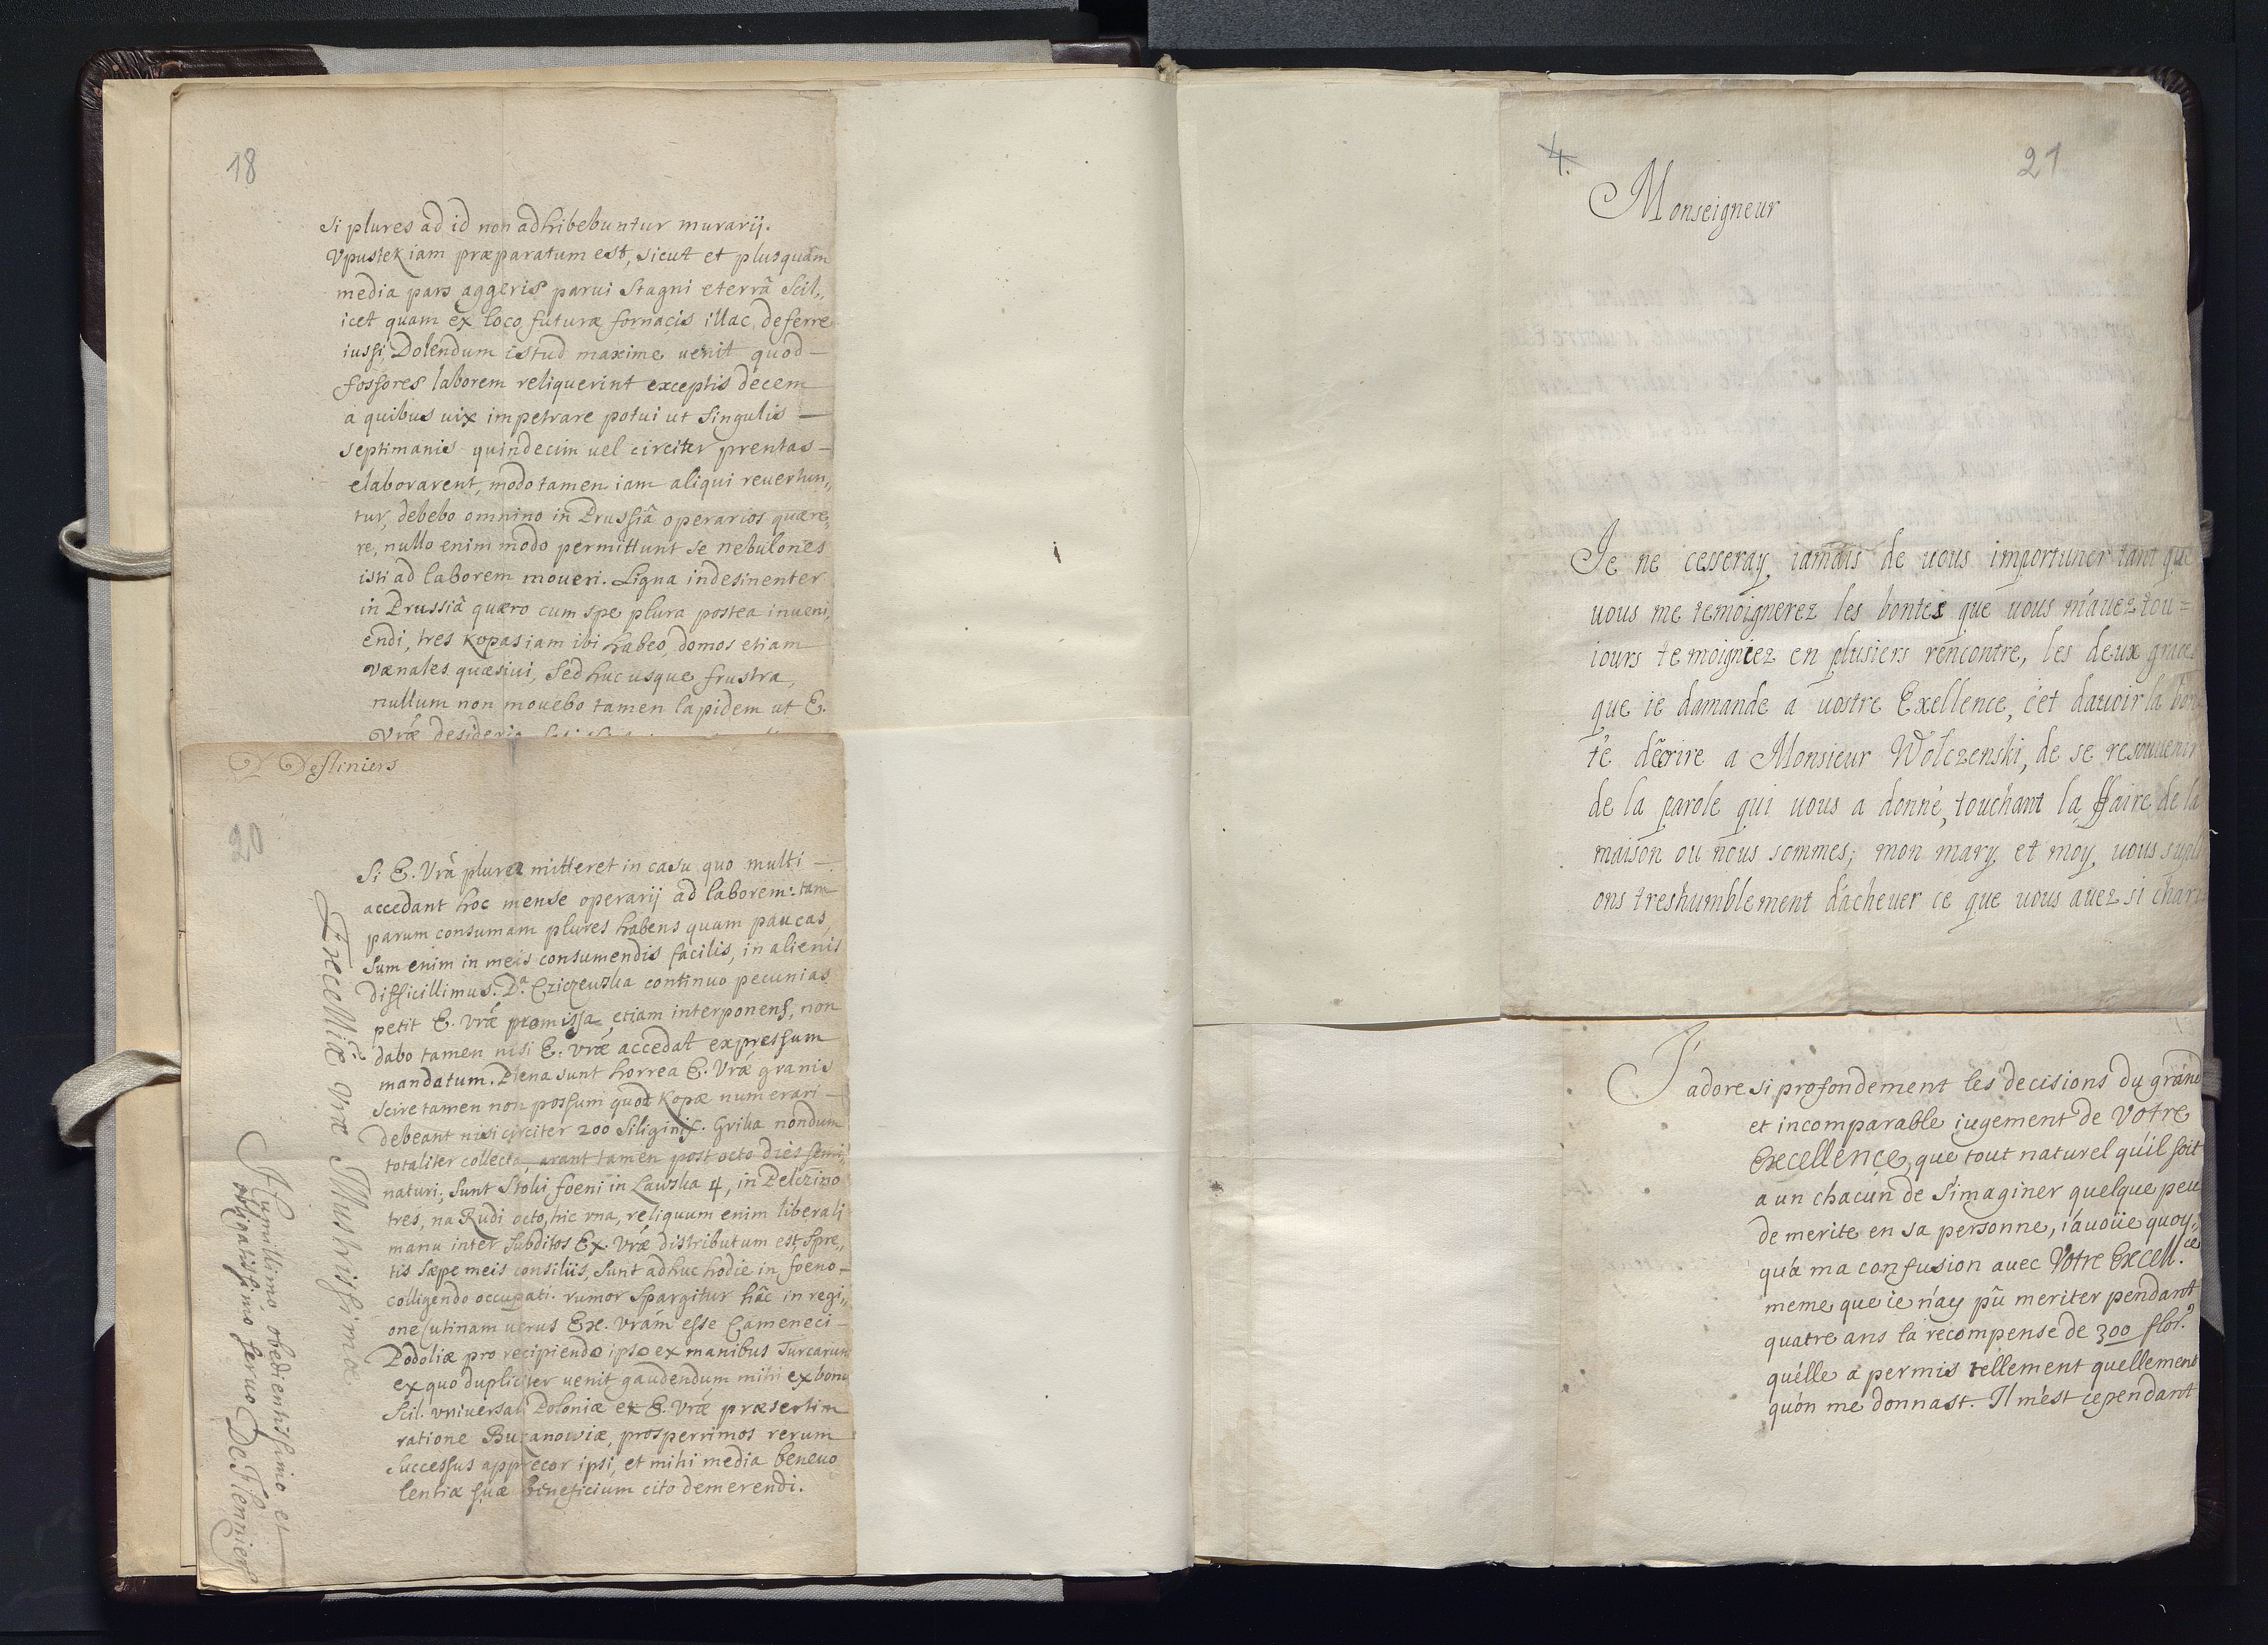 18
Si plures ad id non adhibebuntur murarij.
Vpustek iam præparatum est, sicut et plusquam
media pars aggeris parui Stagni eterrâ Scil„
icet quam ex loco futuræ fornacis illac deferre
iussi, Dolendum istud maxime uenit quod —
fossores laborem reliquerint exceptis decem
a quibus uix impetrare potui ut Singulis —
septimanis quindecim uel circiter prentas —
elaborarent, modo tamen iam aliqui reuertun„
tur, debebo omnino in Prussiâ operarios quære„
re, nullo enim modo permittunt se nebulones
isti ad laborem moueri. Ligna indesinenter
in Prussiâ quæro cum spe plura postea inueni„
endi, tres Kopas iam ibi habeo, domos etiam
vænales quæsiui, Sed huc usque frustra,
nullum non mouebo tamen lapidem ut E.
Vræ desideria
Desliniers
20
Si E. Vrâ plures mitteret in casu quo multi —
accedant hoc mense operarij ad laborem: tam
parum consumam plures habens quam paucas,
Sum enim in meis consumendis facilis, in alienis
difficillimus. Dª. Cziczewska continuo pecunias
petit E. Vræ promissa etiam interponens, non
dabo tamen nisi E. Vræ accedat expressum
mandatum. Plena sunt horrea E. Vræ granis
Scire tamen non possum quot Kopæ numerari —
debeant nisi circiter 200 Siliginis. Grika nondum
totaliter collecta, arant tamen post octo dies semi„
naturi; Sunt Stoki foeni in Lawska 4, in Pelczino
tres, na Rudi octo, hic vna, reliquum enim liberali
manu inter Subditos Ex. Vræ distributum est, Spre„
tis sæpe meis consiliis, Sunt adhuc hodie in foeno —
colligendo occupati. rumor Spargitur hâc in regi„
one (utinam uerus Ex. Vrám esse Cameneci —
Podoliæ pro recipiendo ipso ex manibus Turcarum
ex quo dupliciter uenit gaudendum mihi ex bono
Scil. vniversali Poloniæ et E. Vræ præsertim
ratione Buzanowiæ, prosperrimos rerum
Successus apprecor ipsi, et mihi media beneuo
lentiæ suæ beneficium cito demerendi.
Excelliæ Vræ Illustrissimæ
Humillimo, obedientissimo et
obligatissimo seruo De Slenniers
4.
21
Monseigneur
Je ne cesseray iamais de uous importuner tant que
uous me temoignerez les bontes que uous m'auez tou=
iours temoigniez en plusiers rencontre, les deux graces
que ie damande a uostre Exellence, c'et dauoir la bon
té décrire a Monsieur Wolczenski, de se resouuenir
de la parole qui uous a donné, touchant la ffaire de la
maison ou nous sommes; mon mary, et moy, uous supli
ons treshumblement d'acheuer ce que uous auez si chari
J'adore si profondement les decisions du grand
et incomparable iugement de Votre
Excellence, que tout naturel qu'il soit
a un chacun de S'imaginer quelque peu
de merite en sa personne, i'auoüe quoy„
qu'a ma confusion auec Votre Excell.ce
meme que ie n'ay pû meriter pendant
quatre ans la recompense de 300 flor.
qu'elle a permis tellement quellement
qu'on me donnast. Il m'est cependant